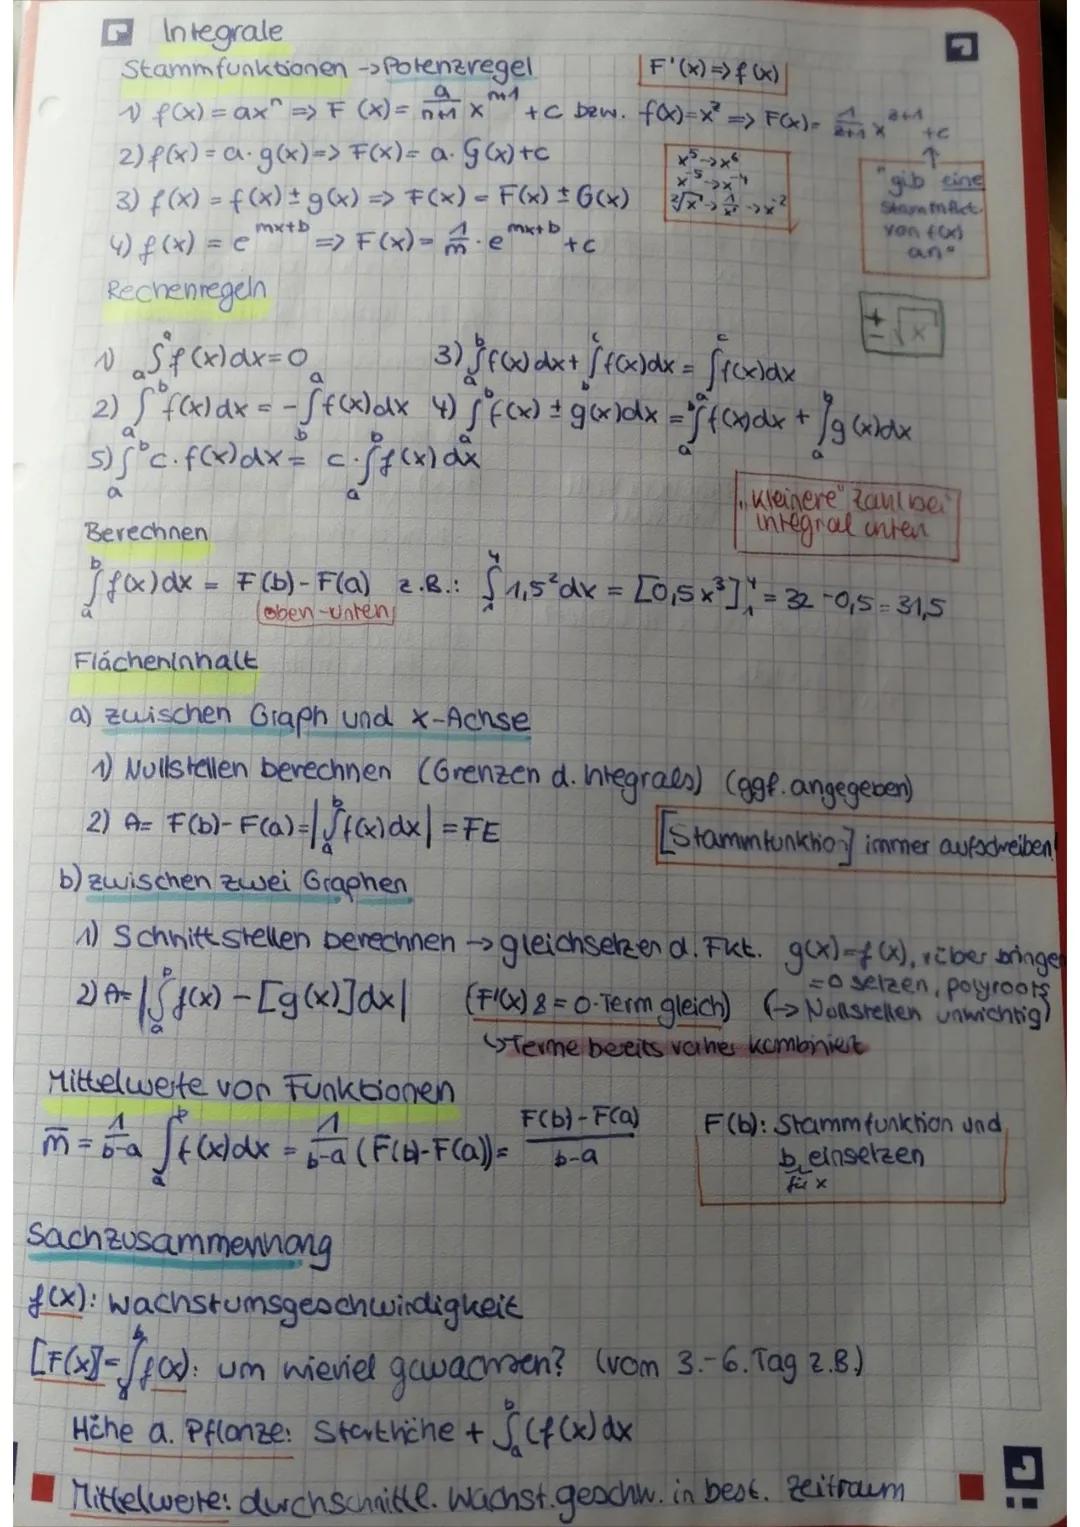 Integrale
Stammfunktionen → Potenzregel
F'(x) => f(x)
1) f(x) = axⁿ => F(x) = a/(n+1) x^(n+1) + c bzw. f(x) = x² => F(x) = 1/(2+1) x^(2+1) + c
2) f(x) = a · g(x) => F(x) = a · G(x) + c
3) f(x) = f(x) ± g(x) => F(x) = F(x) ± G(x)
4) f(x) = e^(mx+b) => F(x) = 1/m · e^(mx+b) + c
x⁵ → x⁶
x⁻⁵ → x⁻⁴
"gib eine
Stammfkt.
von f(x)
an"
Rechenregeln
± √x
1) ₐ∫ᵃ f(x) dx = 0
3) ₐ∫ᵇ f(x) dx + ᵦ∫ᶜ f(x) dx = ₐ∫ᶜ f(x) dx
2) ₐ∫ᵇ f(x) dx = - ᵦ∫ᵃ f(x) dx
4) ₐ∫ᵇ f(x) ± g(x) dx = ₐ∫ᵇ f(x) dx + ₐ∫ᵇ g(x) dx
5) ₐ∫ᵇ c · f(x) dx = c · ₐ∫ᵇ f(x) dx
"kleinere" Zahl bei
integral unten
Berechnen
ₐ∫ᵇ f(x) dx = F(b) - F(a) z.B.: ₁∫⁴ 1,5² dx = [0,5x³]₁⁴ = 32 - 0,5 = 31,5
oben - unten
Flächeninhalt
a) zwischen Graph und x-Achse
1) Nullstellen berechnen (Grenzen d. Integrals) (ggf. angegeben)
2) A = F(b) - F(a) = |ₐ∫ᵇ f(x) dx| = FE
[Stammfunktion] immer aufschreiben!
b) zwischen zwei Graphen
1) Schnittstellen berechnen → gleichsetzen d. Fkt. g(x) = f(x), rüber bringe
= 0 setzen, polyroots
2) A = |ₐ∫ᵇ f(x) - [g(x)] dx| (F'(x) & = 0-Term gleich) (→ Nullstellen unwichtig)
↳ Terme bereits vorher kombiniert
Mittelwerte von Funktionen
m̅ = 1/(b-a) ₐ∫ᵇ f(x) dx = 1/(b-a) (F(b) - F(a)) = (F(b) - F(a))/(b-a)
F(b): Stammfunktion und
b einsetzen
für x
Sachzusammenhang
f(x): Wachstumsgeschwindigkeit
[F(x)] = ₐ∫ᵇ f(x): um wieviel gewachsen? (vom 3.-6. Tag z.B.)
Höhe a. Pflanze: Starthöhe + ₐ∫ᵇ (f(x) dx
Mittelwerte: durchschnittl. Wachst.geschw. in best. Zeitraum